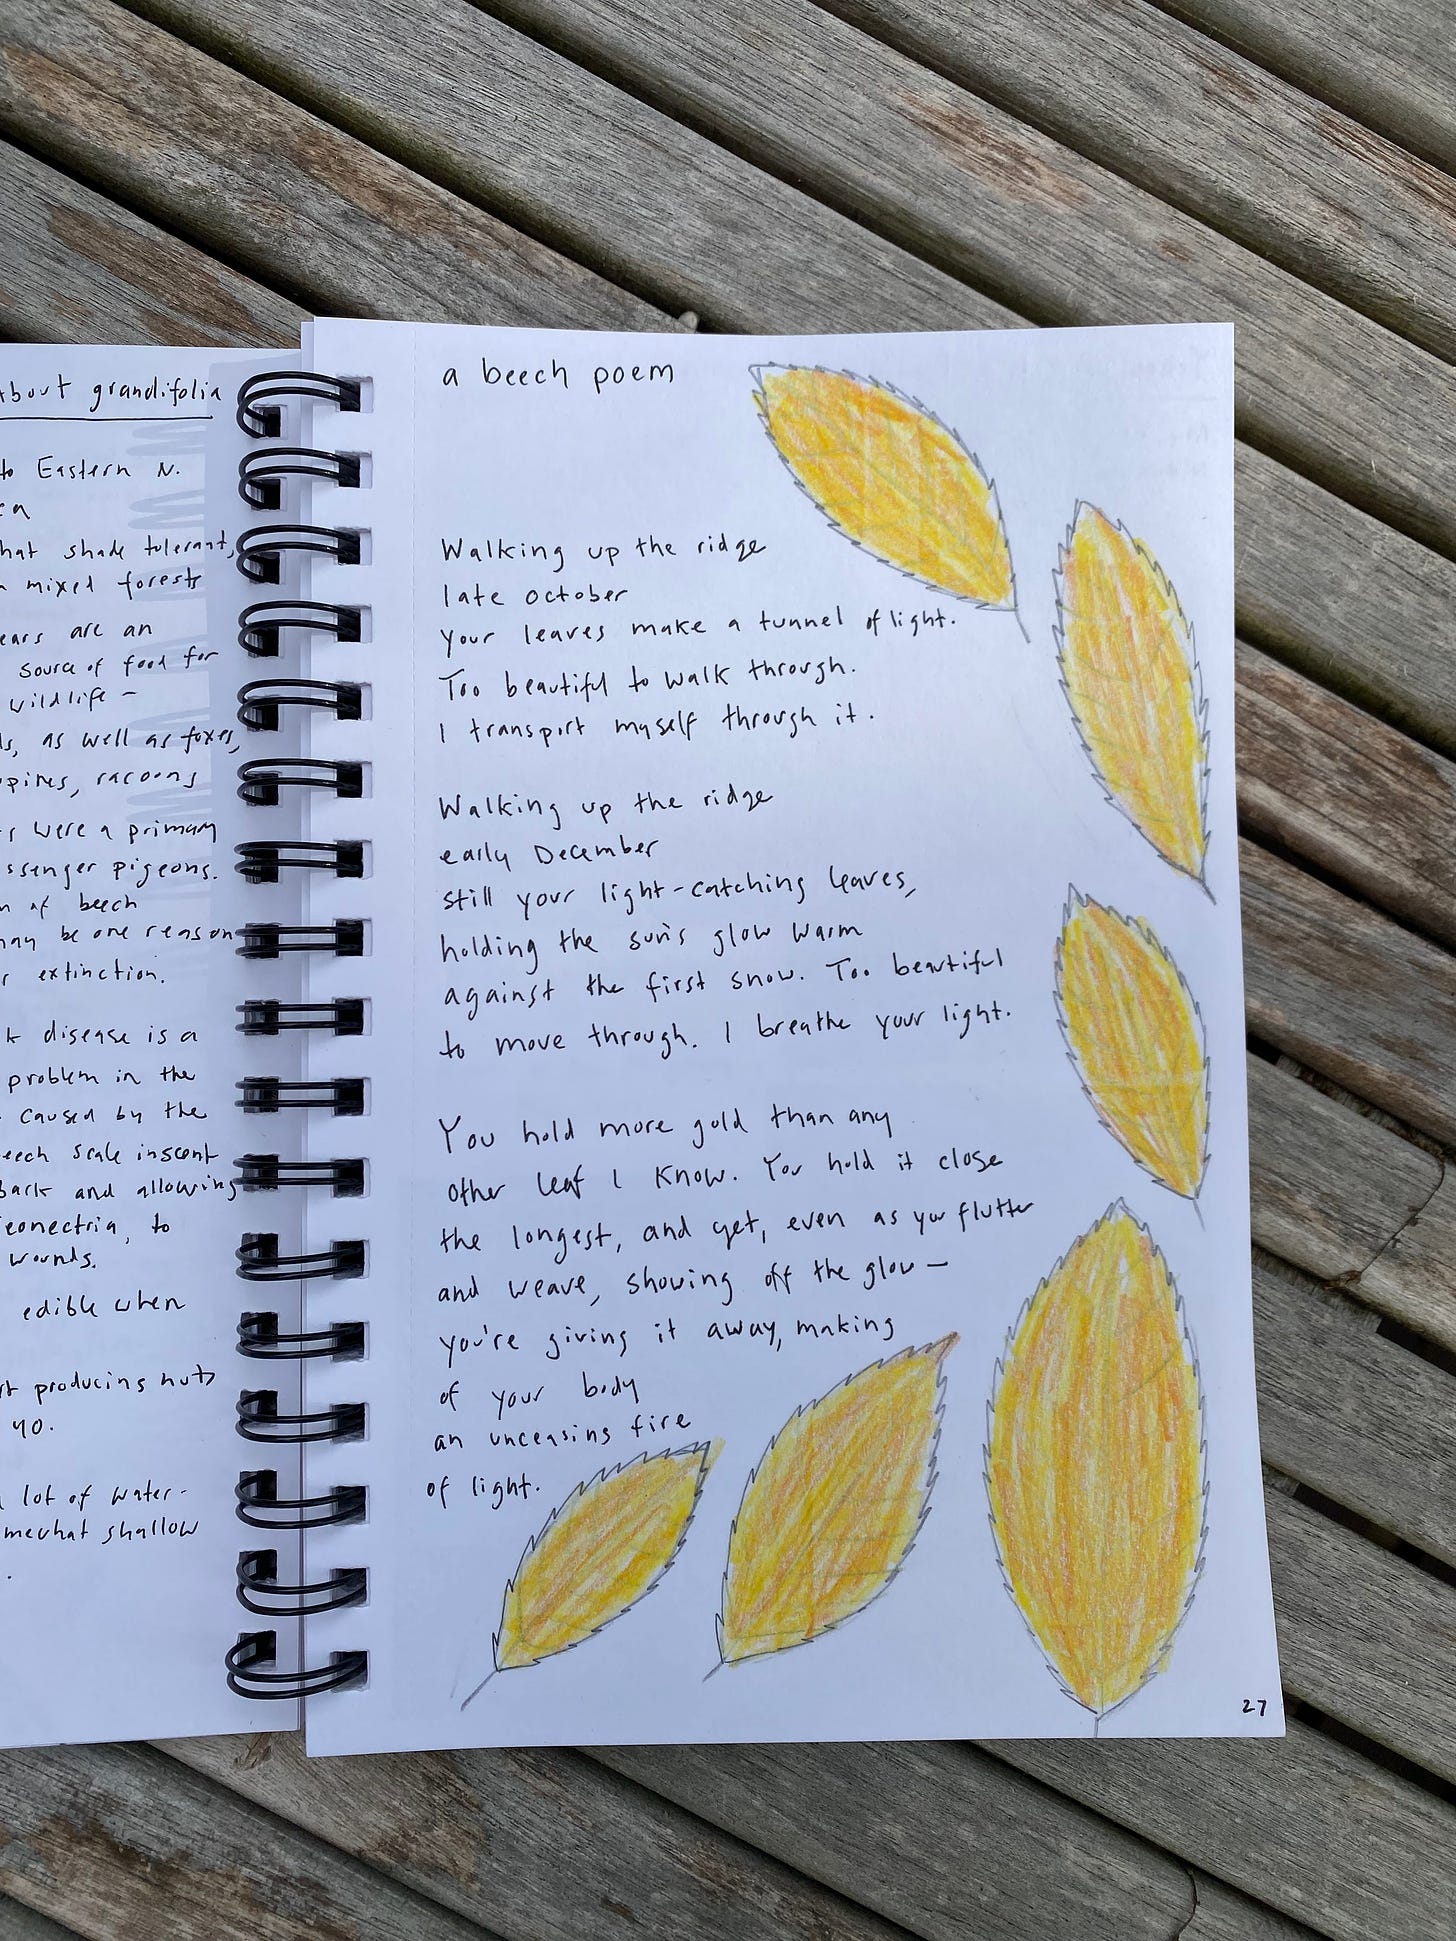 about grandifolia
to Eastern N.
what shade tolerant,
mixed forests
ears are an
source of food for
wildlife –
as well as foxes,
racoons
were a primary
pigeons.
of beech
may be one reason
extinction.
disease is a
problem in the
caused by the
scale insect
bark and allowing
to
wounds.
edible when
producing nuts
40.
lot of water-
shallow
a beech poem
Walking up the ridge
late october
your leaves make a tunnel of light.
Too beautiful to walk through.
I transport myself through it.
Walking up the ridge
early December
still your light-catching leaves,
holding the sun's glow warm
against the first snow. Too beautiful
to move through. I breathe your light.
You hold more gold than any
other leaf I know. You hold it close
the longest, and yet, even as you flutter
and weave, showing off the glow –
you're giving it away, making
of your body
an unceasing fire
of light.
27